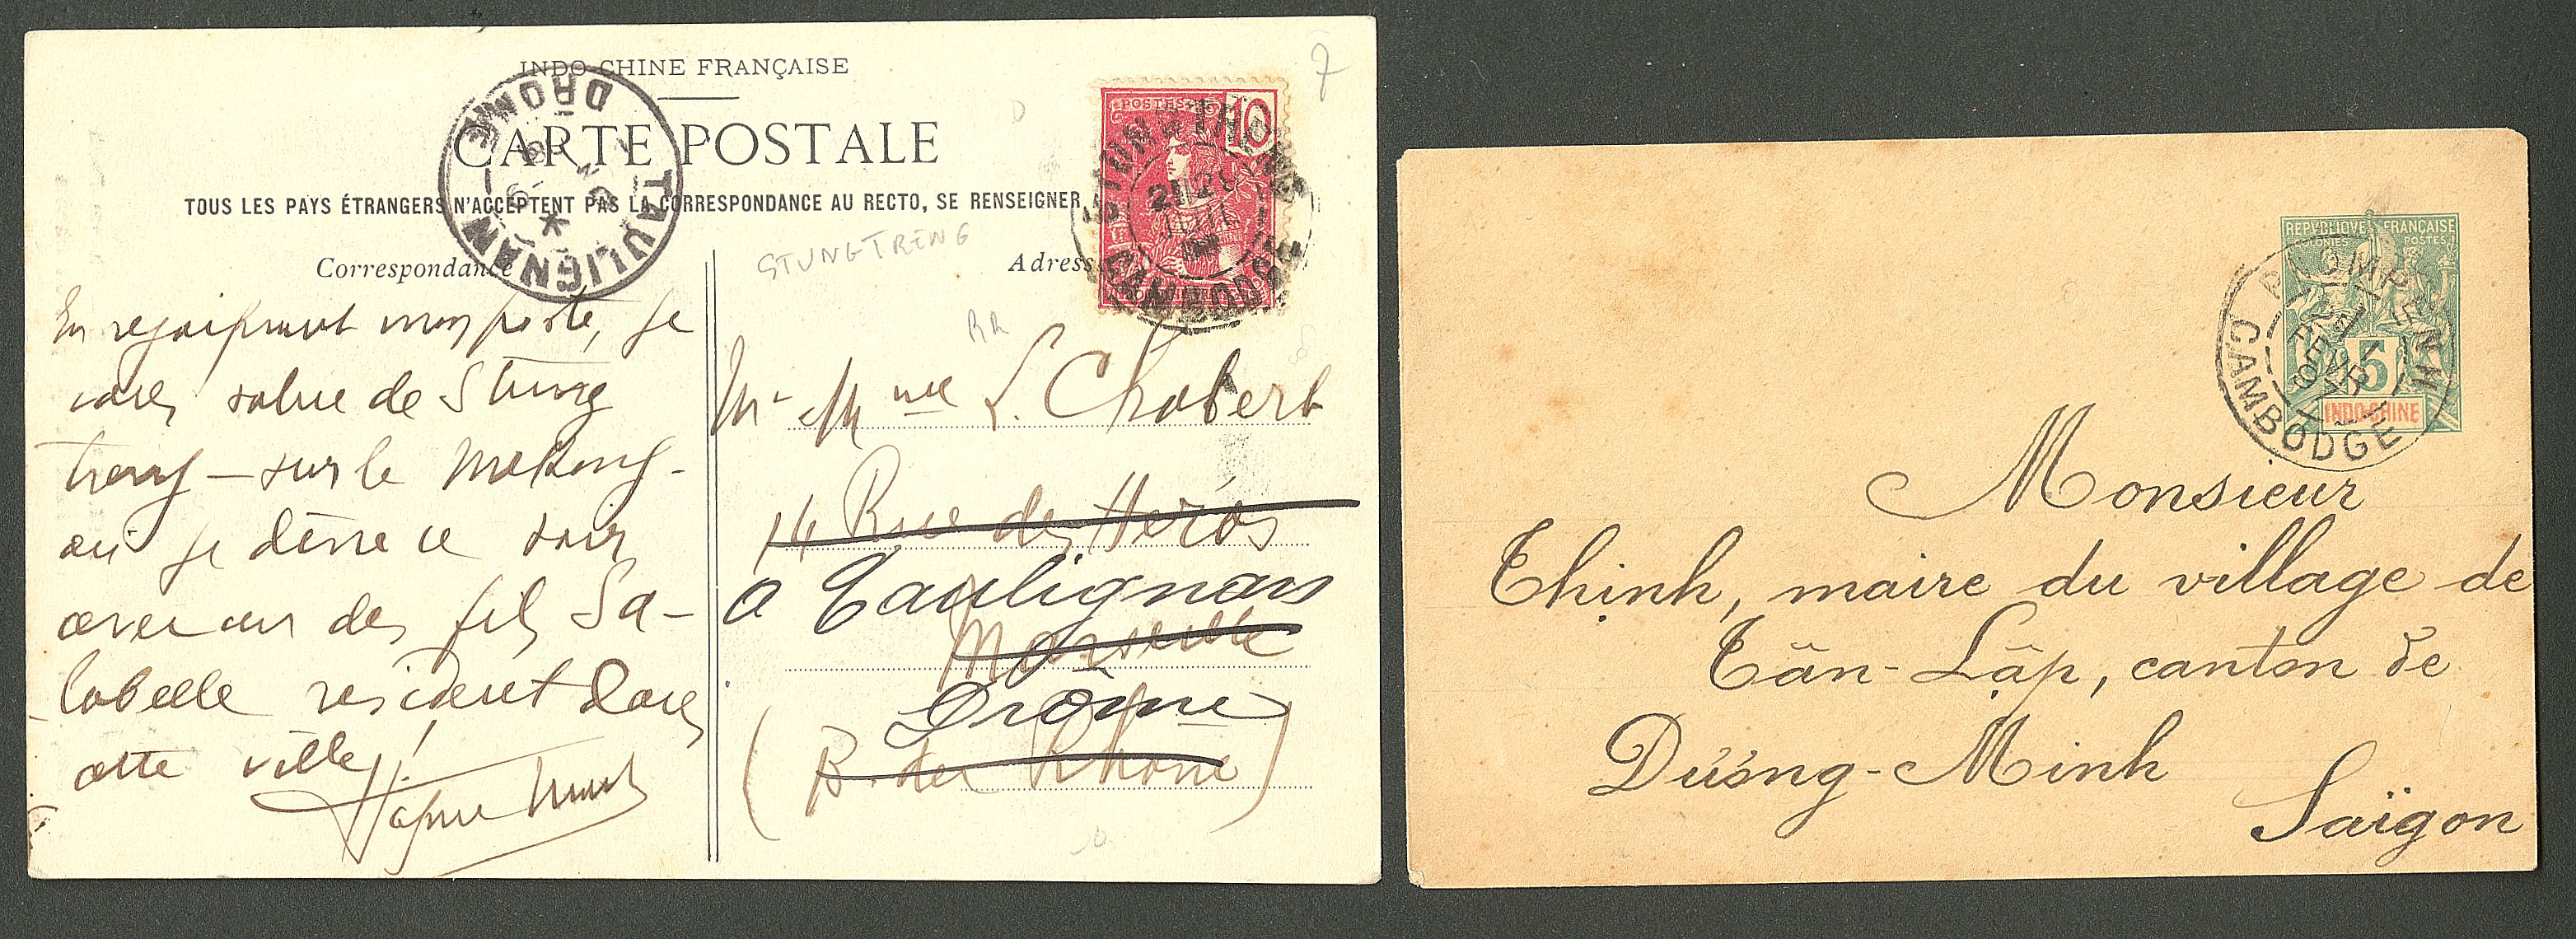 INDO-CHINE FRANÇAISE
CARTE POSTALE
TOUS LES PAYS ÉTRANGERS N'ACCEPTENT PAS LA CORRESPONDANCE AU RECTO, SE RENSEIGNER
Correspondance
Adresse
7
TAULIGNAN
DROME
POSTES
10
STUNGTRENG
CAMBODGE
STUNGTRENG
RR
En rejoignant mon poste, je
vous salue de Stung
treng - sur le Mekong -
où je dîne ce soir
avec un des fils Sa-
labelle resident dans
cette ville!
Mr Mme L. Chabert
14 Rue des Héros
à Taulignan
Marseille
Drôme
(B. des Rhône)
REPUBLIQUE FRANÇAISE
COLONIES POSTES
5
INDO-CHINE
PNOMPENH
CAMBODGE
FEVR
97
Monsieur
Thịnh, maire du village de
Tân-Lập, canton de
Dương-Minh
Saïgon